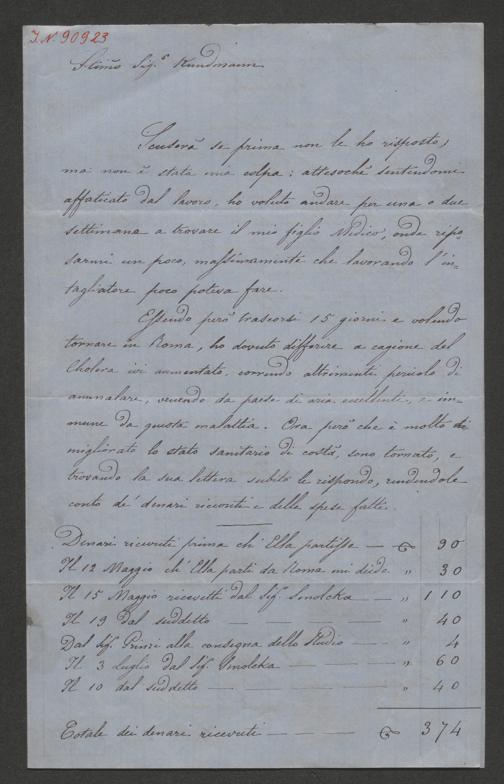 I.N. 90923
Illmo Sig.r Kundmann
Scuserà se prima non le ho risposto,
ma non è stata mia colpa: attesochè sentendomi
affaticato dal lavoro, ho voluto andare per una o due
settimana a trovare il mio figlio Medico, onde ripo-
sarmi un poco, massimamente che lavorando l'in-
tagliatore poco poteva fare.
Essendo però trascorsi 15 giorni e volendo
tornare in Roma, ho dovuto differire a cagione del
Cholera ivi aumentato, correndo altrimenti pericolo di
ammalare, venendo da paese di aria eccellente, e im-
mune da questa malattia. Ora però che è molto
migliorato lo stato sanitario di costà, sono tornato, e
trovando la sua lettera subito le rispondo, rendendole
conto de' denari ricevuti e delle spese fatte.
Denari ricevuti prima ch' Ella partisse — 90
Il 12 Maggio ch' Ella partì da Roma mi diede " 30
Il 15 Maggio ricevetti dal Sig. Smolcka — " 110
Il 19 dal suddetto — — — — " 40
Dal Sig. Prinzi alla consegna dello Studio — " 4
Il 3 Luglio dal Sig. Smolcka — — — " 60
Il 10 dal suddetto — — — — " 40
Totale dei denari ricevuti — — — 374